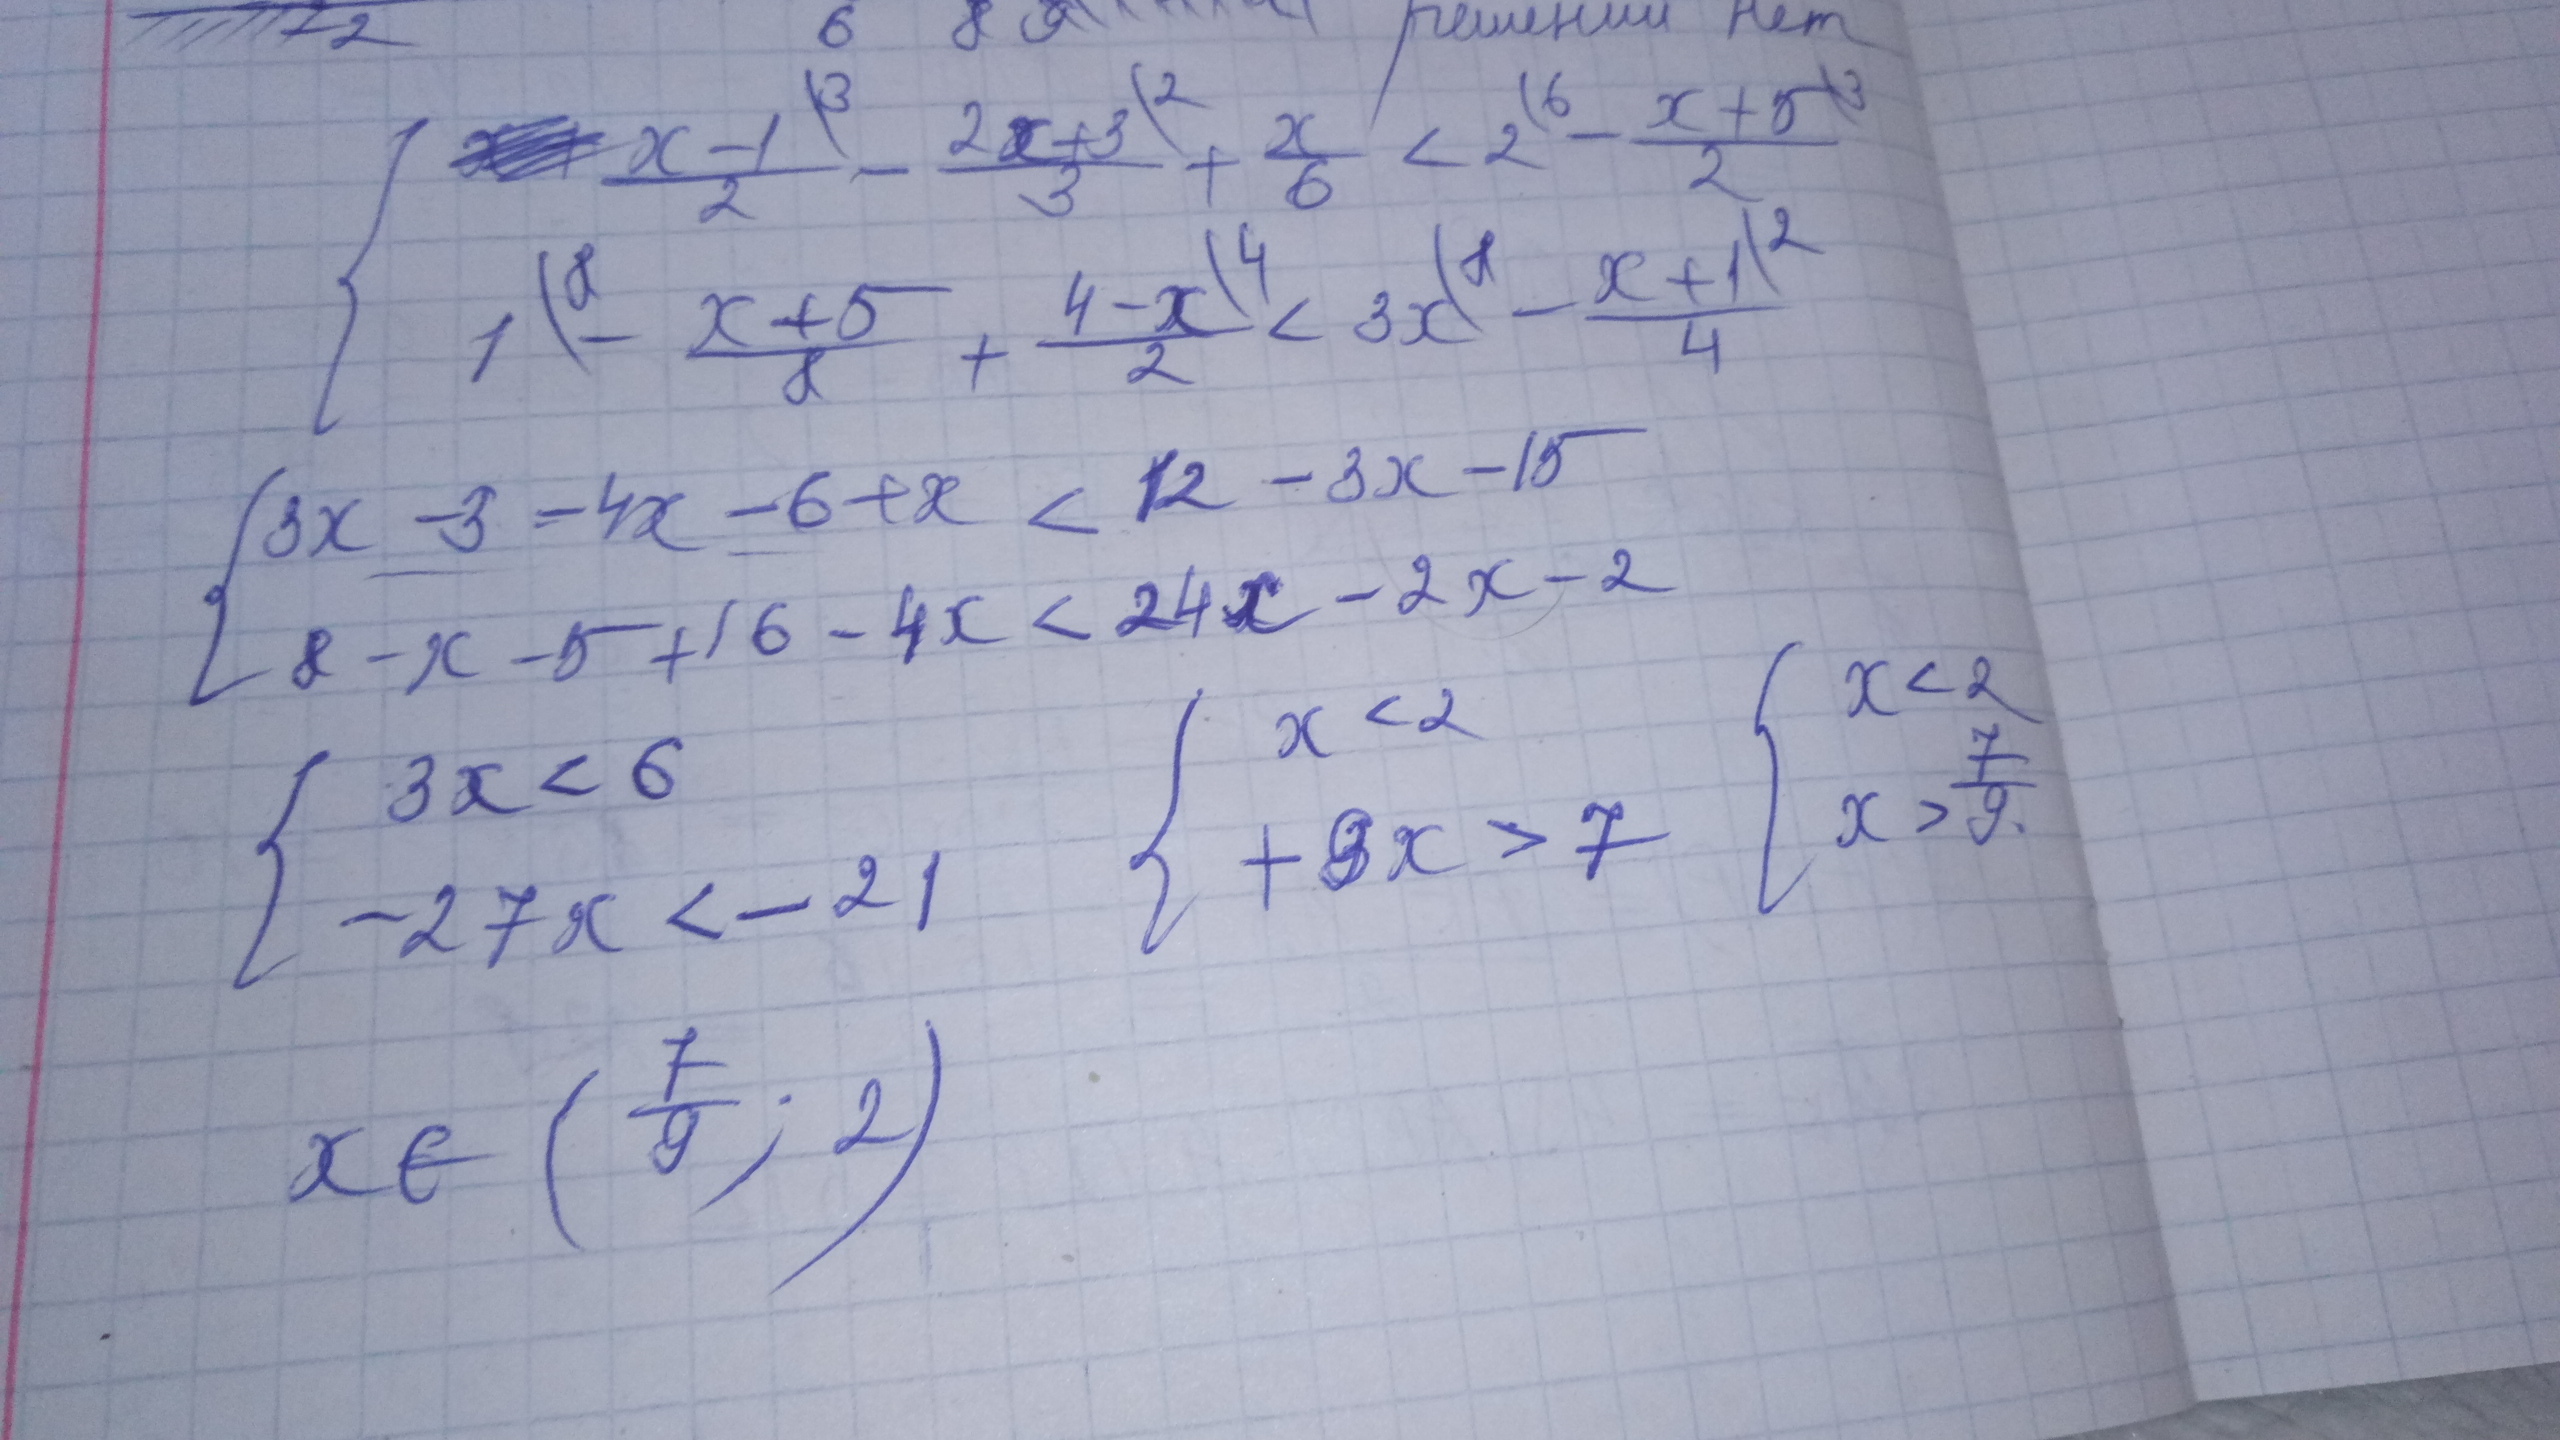 12 6 8 решений нет
{ (x-1)/2 \3 - (2x+3)/3 \2 + x/6 < 2 \6 - (x+5)/2 \3
1 \8 - (x+5)/8 + (4-x)/2 \4 < 3x \8 - (x+1)/4 \2
{ 3x -3 -4x -6 +x < 12 -3x -15
8 -x -5 +16 -4x < 24x -2x -2
{ 3x < 6 { x < 2 { x < 2
-27x < -21 +9x > 7 x > 7/9.
x ∈ (7/9; 2)